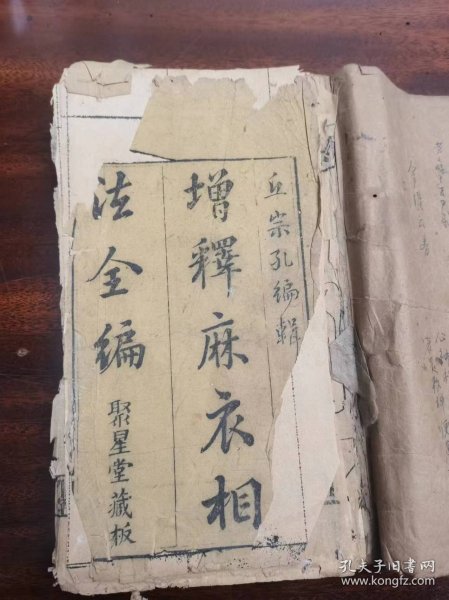 丘宗孔編輯
增釋麻衣相
法全編
聚星堂藏板
孔夫子旧书网
www.kongfz.com